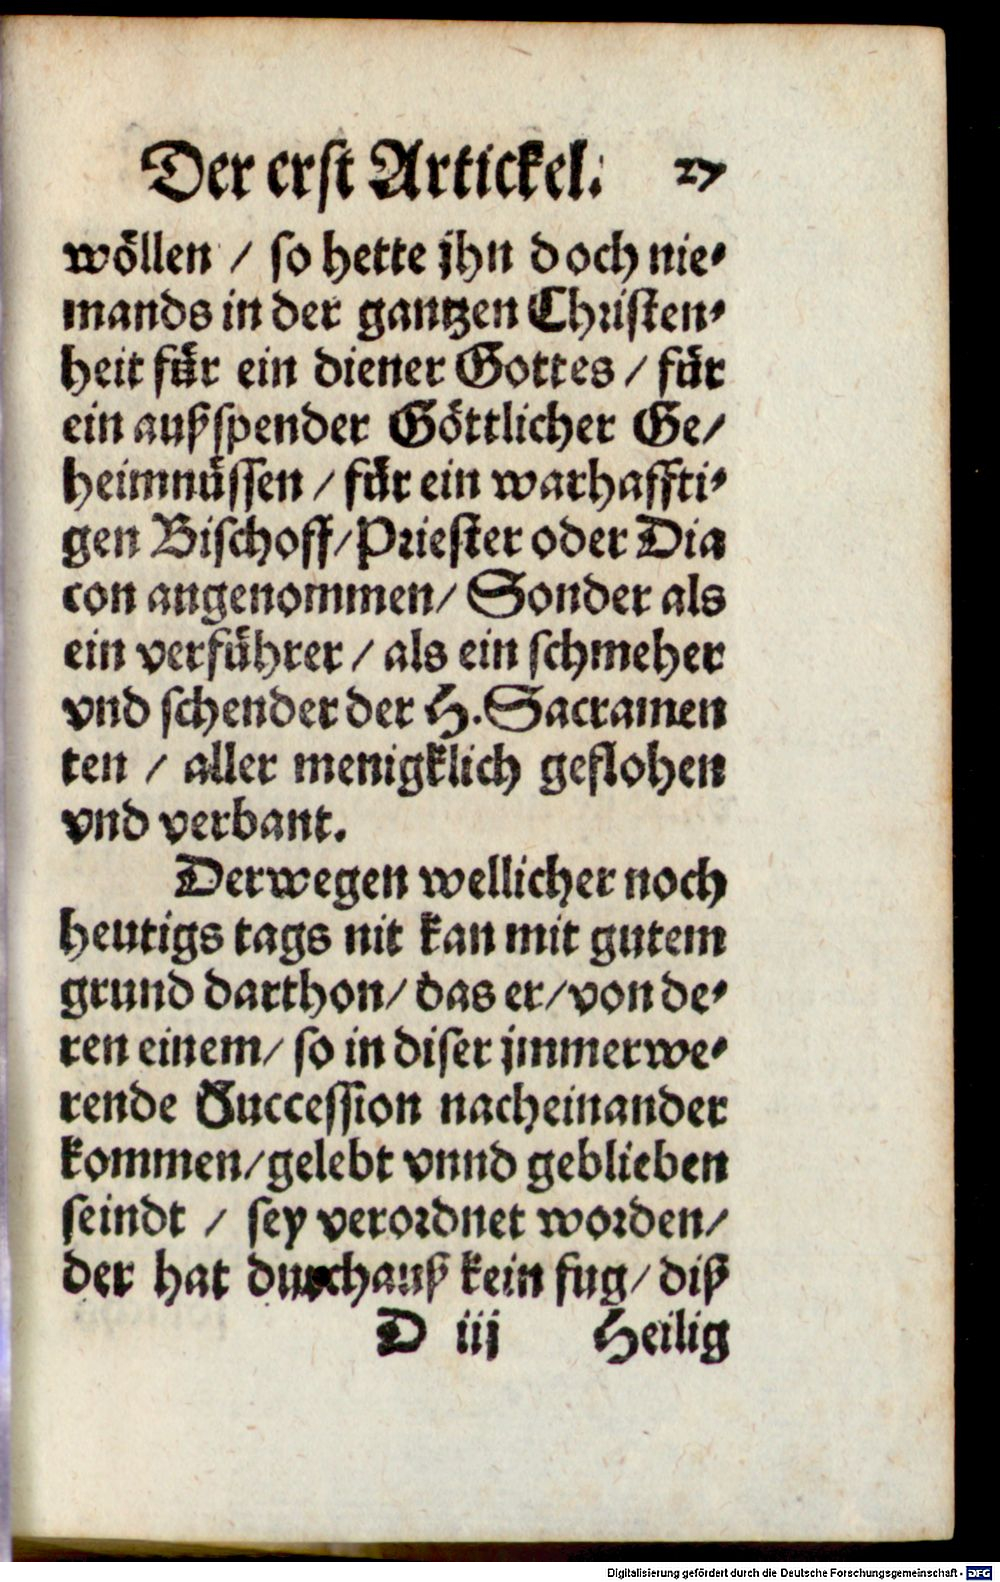 Der erst Artickel. 27
wöllen / so hette jhn doch nie-
mands in der gantzen Christen-
heit für ein diener Gottes / für
ein außspender Göttlicher Ge/
heimnüssen / für ein warhaffti-
gen Bischoff/ Priester oder Dia
con angenommen/ Sonder als
ein verführer / als ein schmeher
vnd schender der H. Sacramen
ten / aller menigklich geflohen
vnd verbant.
Derwegen wellicher noch
heutigs tags nit kan mit gutem
grund darthon/ das er/ von de-
ren einem/ so in diser jmmerwe-
rende Succession nacheinander
kommen/ gelebt vnnd geblieben
seindt / sey verordnet worden/
der hat durchauß kein fug/ diß
D iij Heilig
Digitalisierung gefördert durch die Deutsche Forschungsgemeinschaft - DFG